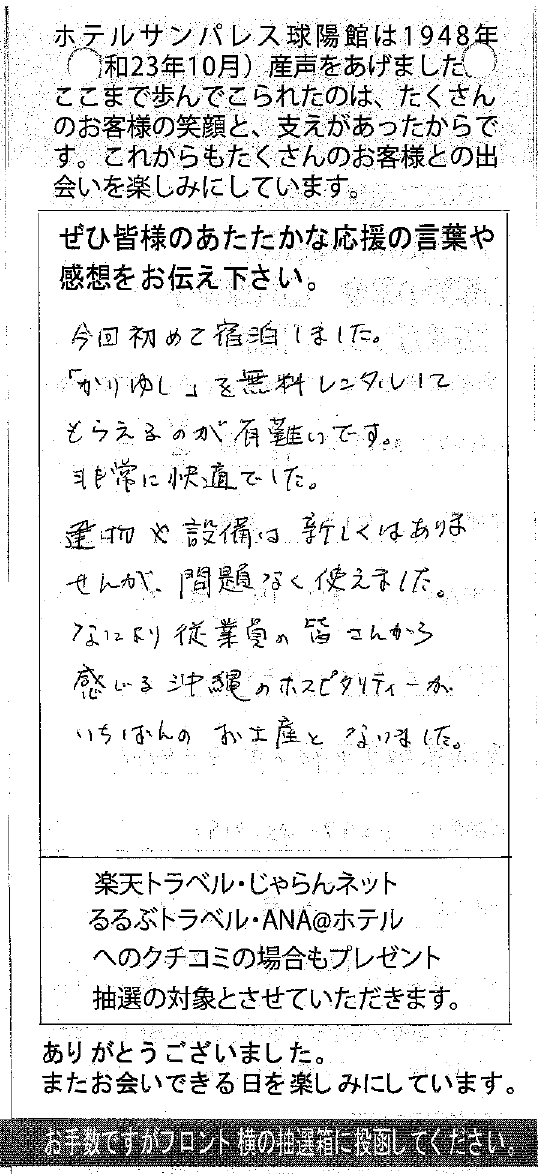 ホテルサンパレス球陽館は1948年
和23年10月）産声をあげました
ここまで歩んでこられたのは、たくさん
のお客様の笑顔と、支えがあったからで
す。これからもたくさんのお客様との出
会いを楽しみにしています。
ぜひ皆様のあたたかな応援の言葉や
感想をお伝え下さい。
今回初めて宿泊しました。
「かりゆし」を無料レンタルして
もらえるのが有難いです。
非常に快適でした。
建物や設備は新しくはありま
せんが、問題なく使えました。
なにより従業員の皆さんから
感じる沖縄のホスピタリティーが
いちばんのお土産となりました。
楽天トラベル・じゃらんネット
るるぶトラベル・ANA@ホテル
へのクチコミの場合もプレゼント
抽選の対象とさせていただきます。
ありがとうございました。
またお会いできる日を楽しみにしています。
お手数ですがフロント横の抽選箱に投函してください。